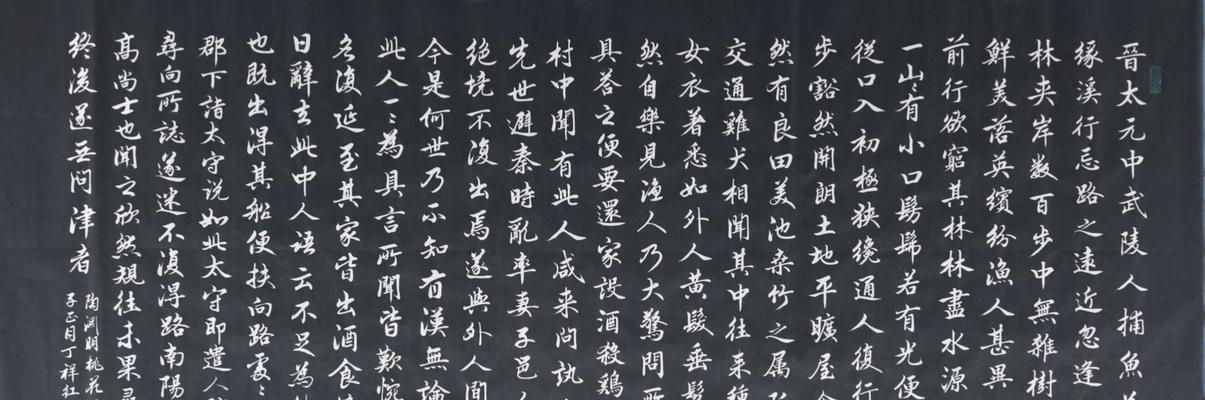 晉太元中武陵人捕魚為
緣溪行忘路之遠近忽逢
林夾岸數百步中無雜樹
鮮美落英繽紛漁人甚異
前行欲窮其林林盡水源
一山〻有小口髣髴若有光便
從口入初極狹纔通人復行
步豁然開朗土地平曠屋舍
然有良田美池桑竹之属
交通雞犬相聞其中往来種
女衣著悉如外人黄髮垂髫
然自樂見漁人乃大驚問所
具荅之便要還家設酒殺鷄
村中聞有此人咸来問訊
先世避秦時亂率妻子邑
絶境不復出焉遂與外人間
今是何世乃不知有漢無論
此人一〻為具言所聞皆歎惋
各復延至其家皆出酒食
日辭去此中人語云不足為
也既出得其船便扶向路處〻
郡下詣太守説如此太守即遣人
尋向所誌遂迷不復得路南陽
高尚士也聞之欣然規往未果尋
終後遂無問津者
陶淵明桃花
子正月丁祥紅